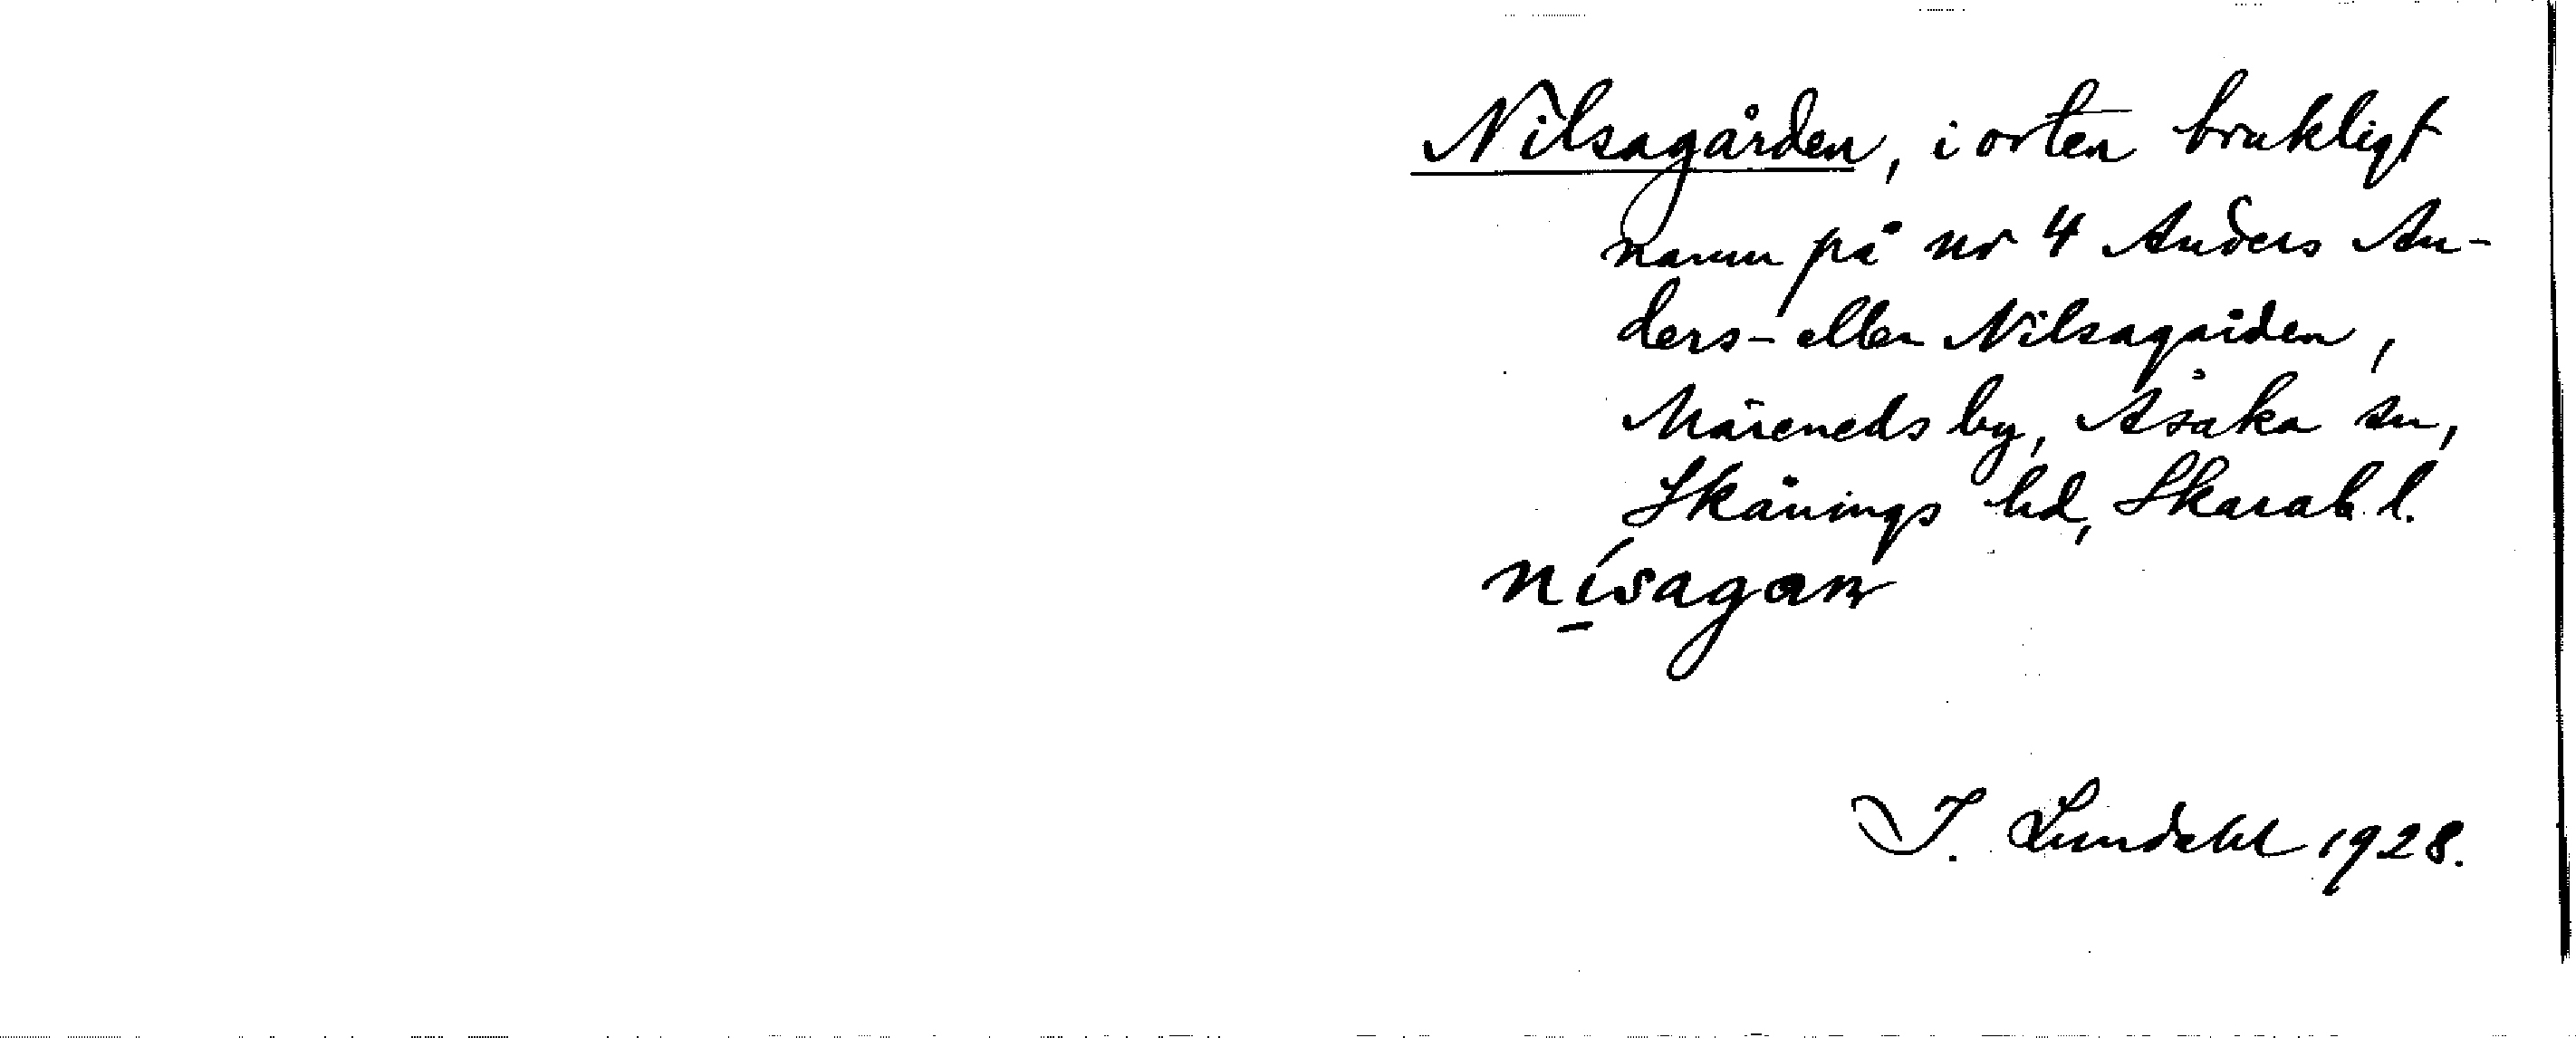 Nilsagården, i orten brukligt
namn på nr 4 Anders An-
ders- eller Nilsagården,
Märeneds by, Åsaka sn,
Skånings hd, Skarab. l.
I. Lundahl 1928.